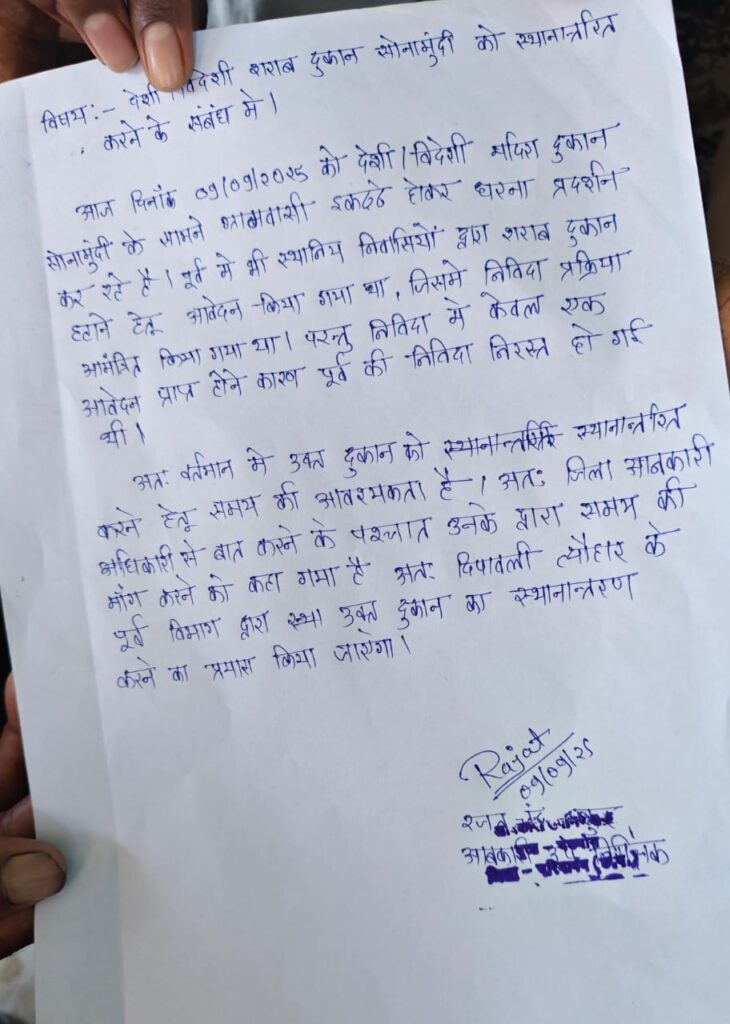 विषय:- देशी/विदेशी शराब दुकान सोनामुंदी को स्थानान्तरित
करने के संबंध मे।
आज दिनांक 09/09/2025 को देशी/विदेशी मदिरा दुकान
सोनामुंदी के सामने ग्रामवासी इकट्ठे होकर धरना प्रदर्शन
कर रहे है। पूर्व मे भी स्थानिय निवासियों द्वारा शराब दुकान
हटाने हेतू आवेदन किया गया था, जिसमे निविदा प्रक्रिया
आमंत्रित किया गया था। परन्तु निविदा मे केवल एक
आवेदन प्राप्त होने कारण पूर्व की निविदा निरस्त हो गई
थी।
अतः वर्तमान मे उक्त दुकान को स्थानान्तरित
करने हेतू समय की आवश्यकता है। अतः जिला आबकारी
अधिकारी से बात करने के पश्चात उनके द्वारा समय की
माँग करने को कहा गया है अतः दिपावली त्यौहार के
पूर्व विभाग द्वारा स्था उक्त दुकान का स्थानान्तरण
करने का प्रयास किया जाऐगा।
Rajat
09/09/25